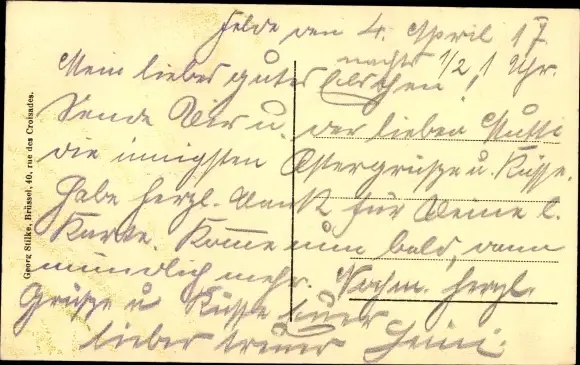 Felde den 4. April 17
nachts 1/2 1 Uhr.
Mein liebes gutes Elschen!
Sende Dir u. der lieben Mutti
die innigsten Ostergrüße u. Küsse.
Habe herzl. Dank für Deine l.
Karte. Komme nun bald, dann
mündlich mehr. Nochm. herzl.
Grüße u Küsse Euer
lieber treuer Heini.
Georg Stilke, Brüssel, 40, rue des Croisades.